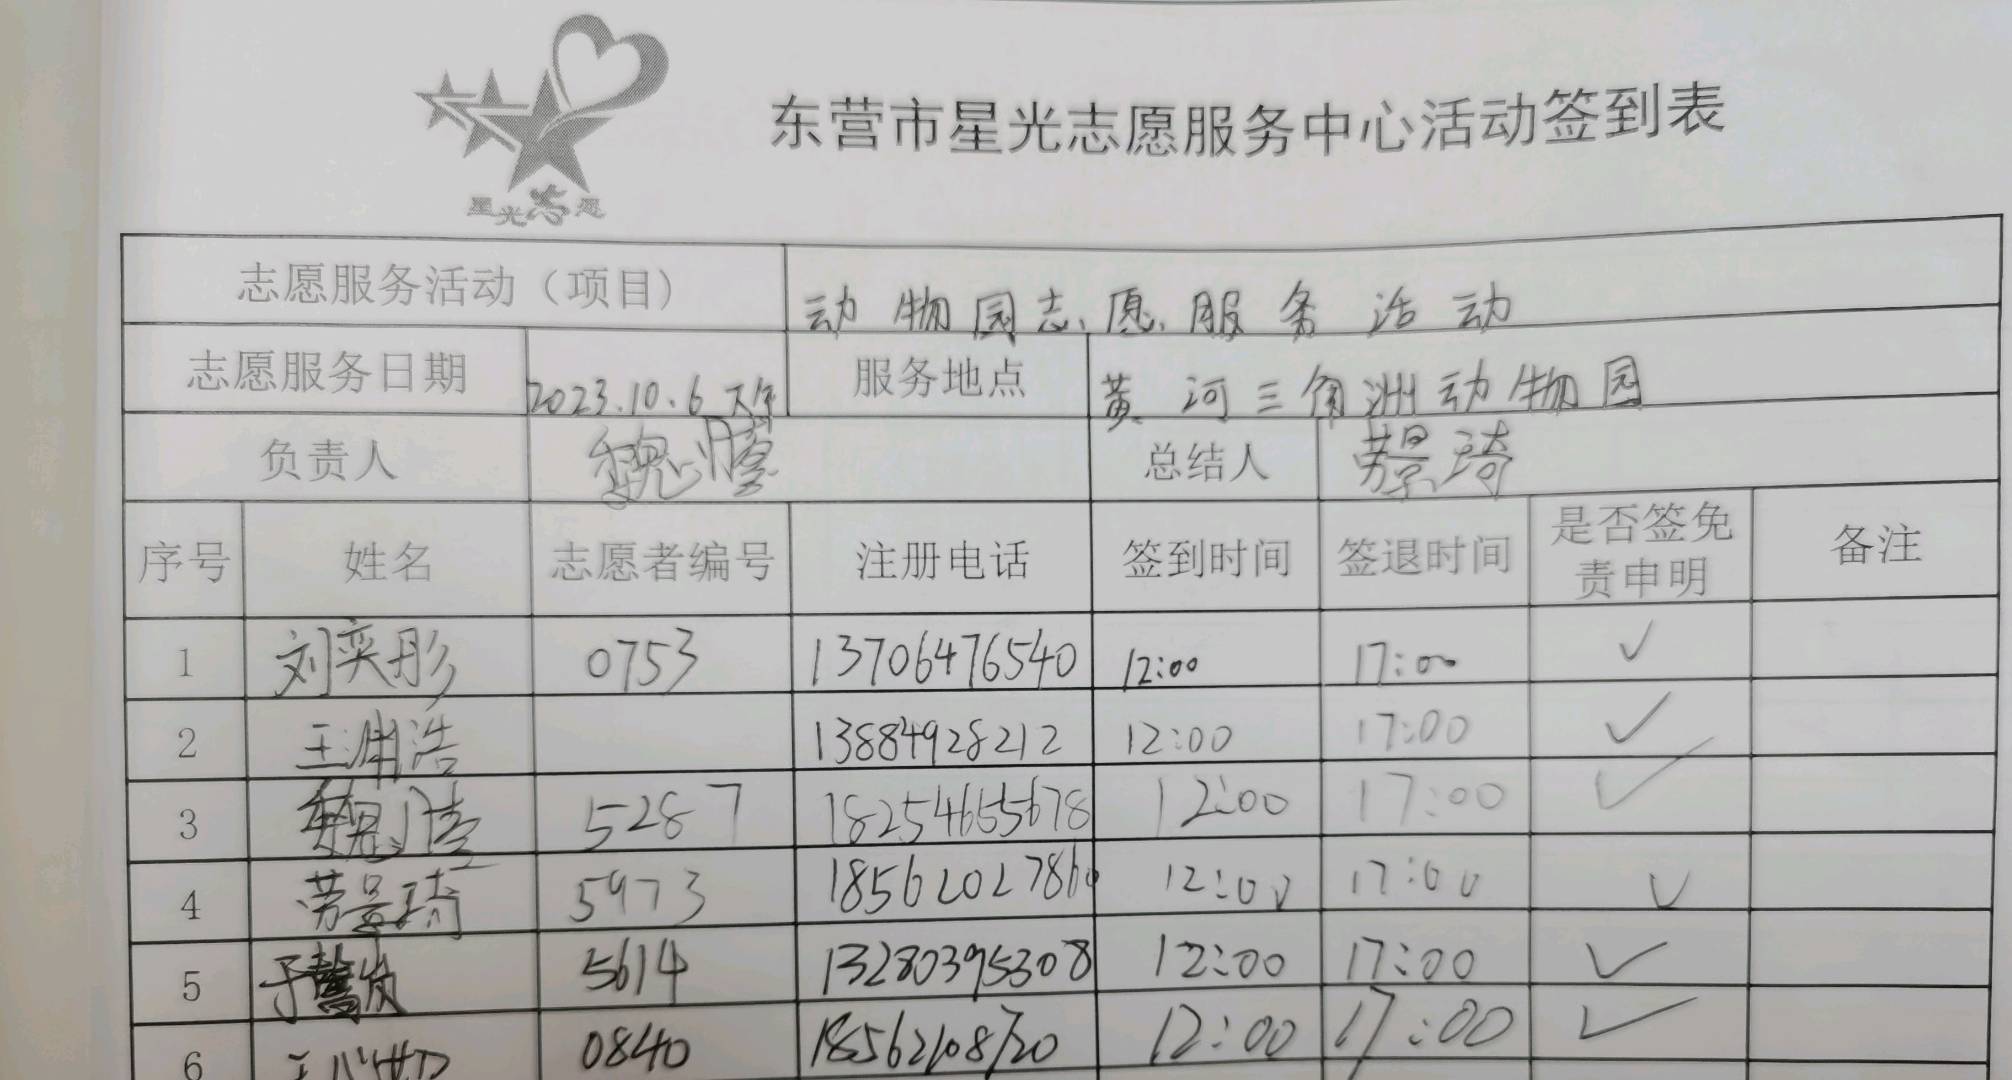 星光志愿
东营市星光志愿服务中心活动签到表
志愿服务活动（项目） 动物园志愿服务活动
志愿服务日期 2023.10.6 下午 服务地点 黄河三角洲动物园
负责人 魏 总结人 劳景琦
序号 姓名 志愿者编号 注册电话 签到时间 签退时间 是否签免责申明 备注
1 刘奕彤 0753 13706476540 12:00 17:00 ✓
2 王渊浩 13884928212 12:00 17:00 ✓
3 魏 5287 18254665678 12:00 17:00 ✓
4 劳景琦 5973 18562027860 12:00 17:00 ✓
5 于 5614 13280395308 12:00 17:00 ✓
6 王 0840 18562108720 12:00 17:00 ✓